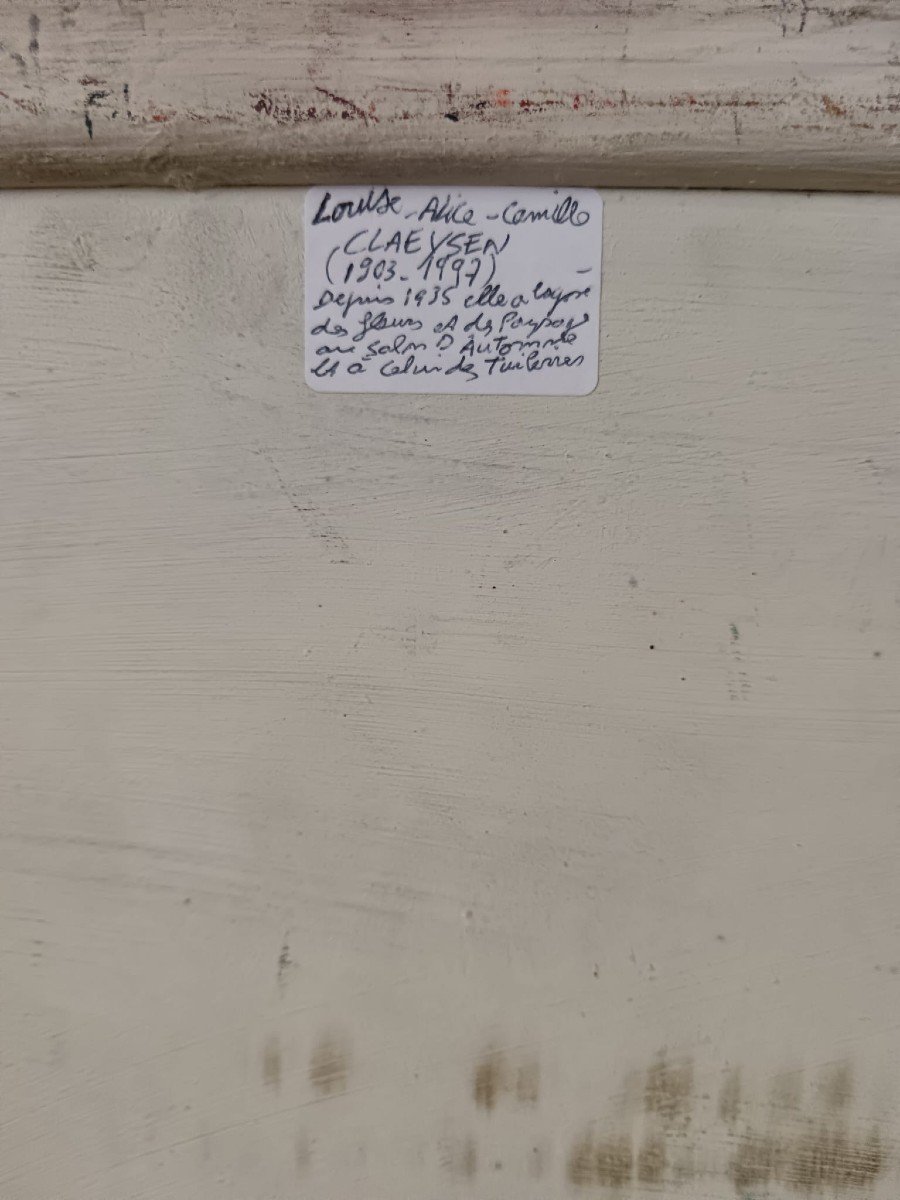 Louise - Alice - Camille
CLAEYSEN
(1903 - 1997)
Depuis 1935 elle a exposé
des fleurs et des Paysages
au Salon D Automne
et à celui des Tuileries